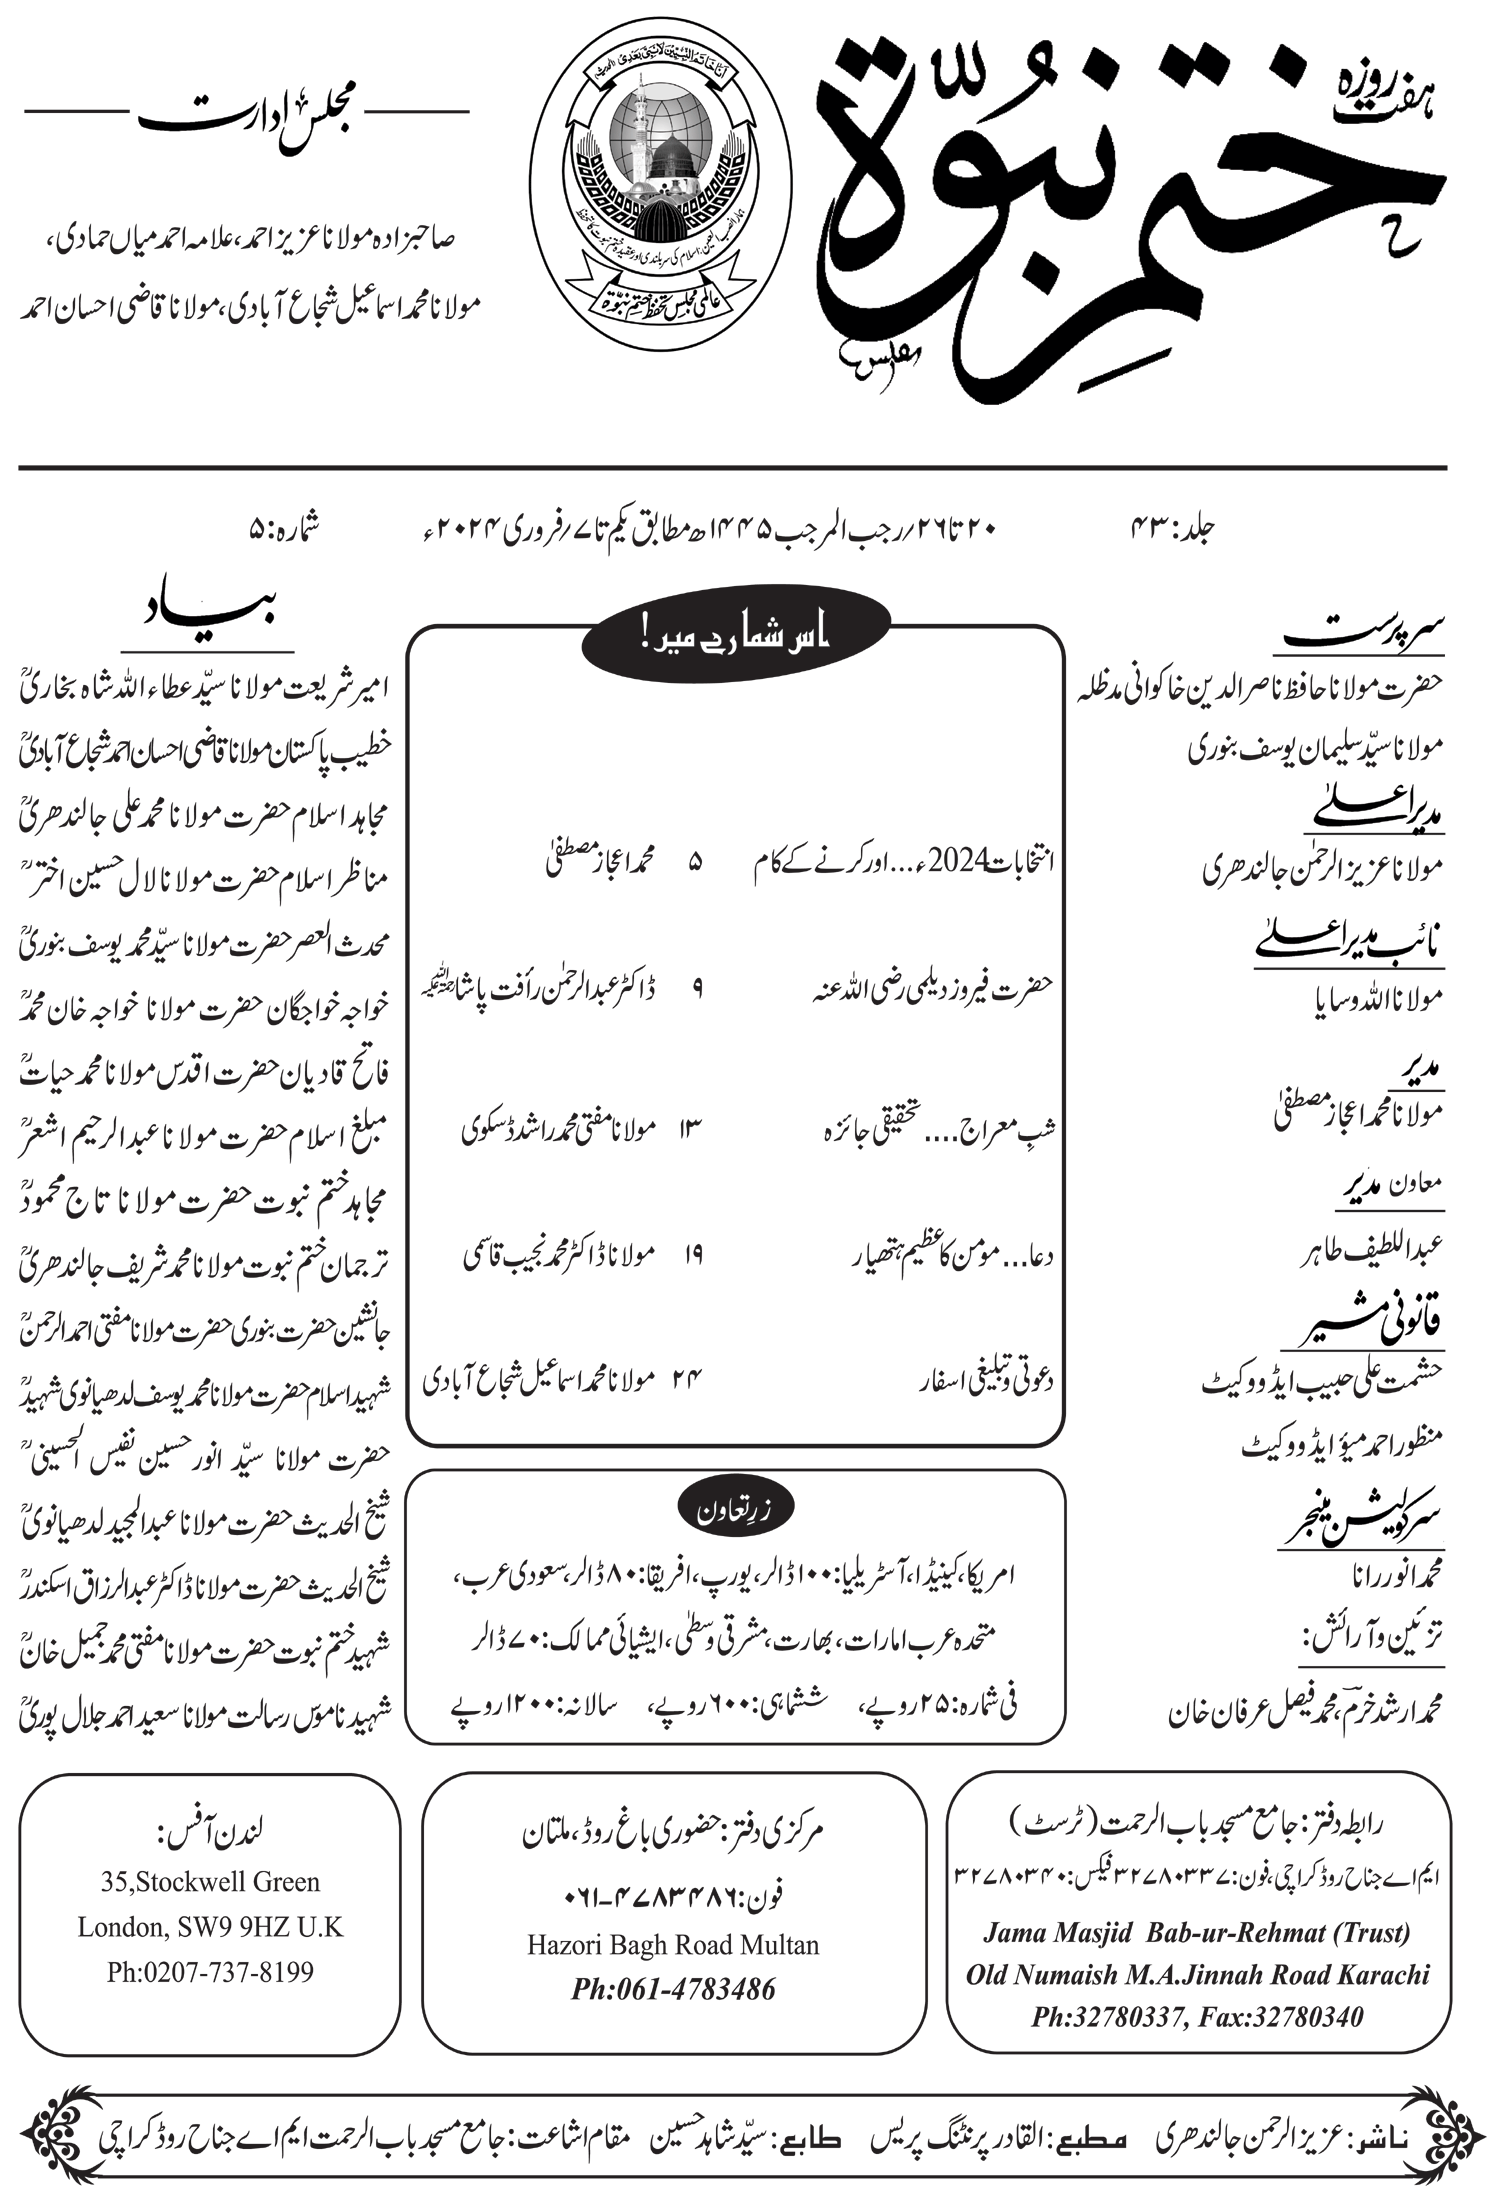 ہفت روزہ
ختم نبوۃ
انا خاتم النبیین لا نبی بعدی
عالمی مجلس تحفظ ختم نبوۃ
مجلس ادارت
صاحبزادہ مولانا عزیز احمد، علامہ احمد میاں حمادی،
مولانا محمد اسماعیل شجاع آبادی، مولانا قاضی احسان احمد
جلد: ۴۳
۲۰ تا ۲۶؍ رجب المرجب ۱۴۴۵ھ مطابق یکم تا ۷؍ فروری ۲۰۲۴ء
شمارہ: ۵
سرپرست
حضرت مولانا حافظ ناصر الدین خاکوانی مدظلہ
مولانا سیّد سلیمان یوسف بنوری
مدیر اعلیٰ
مولانا عزیز الرحمٰن جالندھری
نائب مدیر اعلیٰ
مولانا اللہ وسایا
مدیر
مولانا محمد اعجاز مصطفیٰ
معاون مدیر
عبداللطیف طاہر
قانونی مشیر
حشمت علی حبیب ایڈووکیٹ
منظور احمد میؤ ایڈووکیٹ
سرکولیشن مینجر
محمد انور رانا
تزئین و آرائش:
محمد ارشد خرم، محمد فیصل عرفان خان
اس شمارے میں!
انتخابات 2024ء... اور کرنے کے کام ۵ محمد اعجاز مصطفیٰ
حضرت فیروز دیلمی رضی اللہ عنہ ۹ ڈاکٹر عبدالرحمٰن رأفت پاشا رحمۃ اللہ علیہ
شبِ معراج.... تحقیقی جائزہ ۱۳ مولانا مفتی محمد راشد ڈسکوی
دعا... مومن کا عظیم ہتھیار ۱۹ مولانا ڈاکٹر محمد نجیب قاسمی
دعوتی و تبلیغی اسفار ۲۴ مولانا محمد اسماعیل شجاع آبادی
زرِ تعاون
امریکا، کینیڈا، آسٹریلیا: ۱۰۰ ڈالر، یورپ، افریقا: ۸۰ ڈالر، سعودی عرب،
متحدہ عرب امارات، بھارت، مشرقِ وسطیٰ، ایشیائی ممالک: ۷۰ ڈالر
فی شمارہ: ۲۵ روپے، ششماہی: ۶۰۰ روپے، سالانہ: ۱۲۰۰ روپے
بیاد
امیر شریعت مولانا سیّد عطاء اللہ شاہ بخاریؒ
خطیب پاکستان مولانا قاضی احسان احمد شجاع آبادیؒ
مجاہد اسلام حضرت مولانا محمد علی جالندھریؒ
مناظر اسلام حضرت مولانا لال حسین اخترؒ
محدث العصر حضرت مولانا سیّد محمد یوسف بنوریؒ
خواجہ خواجگان حضرت مولانا خواجہ خان محمدؒ
فاتح قادیان حضرت اقدس مولانا محمد حیاتؒ
مبلغ اسلام حضرت مولانا عبدالرحیم اشعرؒ
مجاہد ختم نبوت حضرت مولانا تاج محمودؒ
ترجمان ختم نبوت مولانا محمد شریف جالندھریؒ
جانشین حضرت بنوری حضرت مولانا مفتی احمد الرحمنؒ
شہید اسلام حضرت مولانا محمد یوسف لدھیانوی شہیدؒ
حضرت مولانا سیّد انور حسین نفیس الحسینیؒ
شیخ الحدیث حضرت مولانا عبدالمجید لدھیانویؒ
شیخ الحدیث حضرت مولانا ڈاکٹر عبدالرزاق اسکندرؒ
شہید ختم نبوت حضرت مولانا مفتی محمد جمیل خانؒ
شہید ناموس رسالت مولانا سعید احمد جلال پوریؒ
رابطہ دفتر: جامع مسجد باب الرحمت (ٹرسٹ)
ایم اے جناح روڈ کراچی، فون: ۳۲۷۸۰۳۳۷ فیکس: ۳۲۷۸۰۳۴۰
Jama Masjid Bab-ur-Rehmat (Trust)
Old Numaish M.A.Jinnah Road Karachi
Ph:32780337, Fax:32780340
مرکزی دفتر: حضوری باغ روڈ، ملتان
فون: ۰۶۱-۴۷۸۳۴۸۶
Hazori Bagh Road Multan
Ph:061-4783486
لندن آفس:
35,Stockwell Green
London, SW9 9HZ U.K
Ph:0207-737-8199
ناشر: عزیز الرحمن جالندھری مطبع: القادر پرنٹنگ پریس طابع: سیّد شاہد حسین مقام اشاعت: جامع مسجد باب الرحمت ایم اے جناح روڈ کراچی